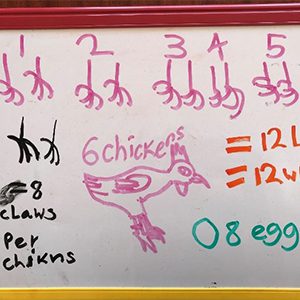 1 2 3 4 5
6 chickens
= 12 L
= 12 w
= 8
claws
Per
chikns
8 egg